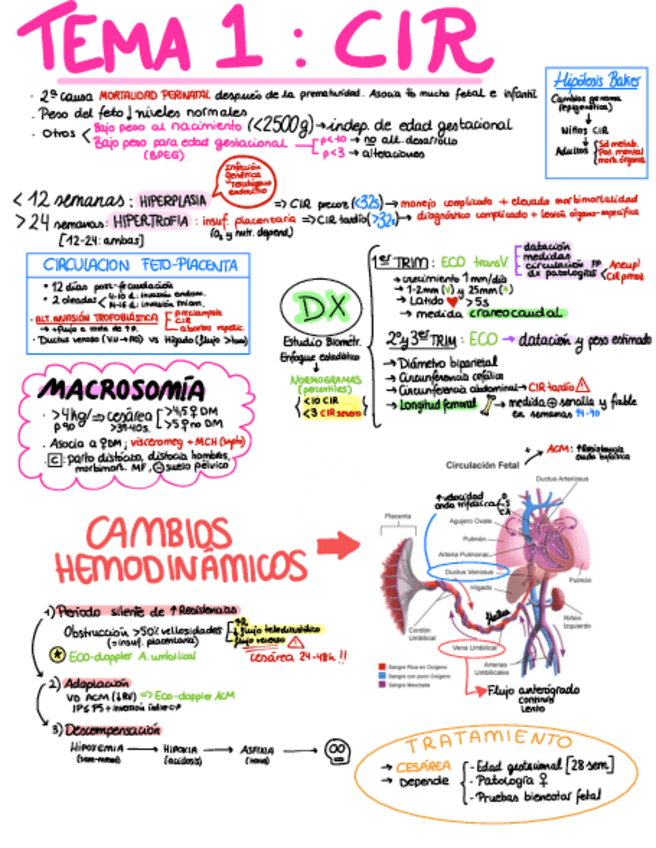 TEMA 1 : CIR
· 2ª causa MORTALIDAD PERINATAL después de la prematuridad. Asocia tb mucha fetal e infantil
· Peso del feto ↓ niveles normales
· Otros < Bajo peso al nacimiento (<2500g) → indep. de edad gestacional
Bajo peso para edad gestacional
(BPEG)
p<10 → no alt. desarrollo
p<3 → alteraciones
Hipótesis Baker
Cambios genoma
(epigenética)
↓
Niños CIR
↓
Adultos
Sd metab.
Pat. mental
morb. órganos
Infección
genética
Teratógeno
endocrino
< 12 semanas : HIPERPLASIA ⇒ CIR precoz (<32s) → manejo complicado + elevada morbimortalidad
> 24 semanas : HIPERTROFIA : insuf. placentaria ⇒ CIR tardío (>32s) → diagnóstico complicado + lesión órgano-específica
(O₂ y nutr. depend.)
[12-24: ambas]
CIRCULACION FETO-PLACENTA
• 12 días post-fecundación
• 2 oleadas
· ALT. INVASIÓN TROFOBLÁSTICA
preeclampsia
CIR
abortos repetic.
· Ductus venoso (VU → AD) vs Hígado (flujo > lento)
DX
Estudio Biométr.
Enfoque estadístico
↓
NORMOGRAMAS
(percentiles)
<10 CIR
<3 CIR severo
1er TRIM: ECO transV.
datación
medidas
circulación FP
dx patologías
Aneupl
CIR precoz
→ crecimiento 1 mm/día
→ 1-2mm (V) y 25mm (A)
→ Latido ♥ > 5s
→ medida craneocaudal
2º y 3er TRIM: ECO → datación y peso estimado
→ Diámetro biparietal
→ Circunferencia cefálica
→ Circunferencia abdominal → CIR tardío
→ Longitud femoral → medida ⊕ sencilla y fiable
en semanas 14-40
MACROSOMÍA
· >4kg/p90 ⇒ cesárea
>39-40s.
>4,5 ♀ DM
>5 ♀ no DM
· Asocia a ♀DM; visceromeg + MCH (septo)
· C : parto distócico, distocia hombros,
morbimort. MF, ⊖ suelo pélvico
CAMBIOS
HEMODINÁMICOS
→ ACM: ↑Resistencia
onda bifásica
Circulación Fetal
↑ velocidad
onda trifásica
D
S
CA
Ductus Arteriosus
Placenta
Agujero Ovale
Pulmón
Arteria Pulmonar
Ductus Venosus
Hígado
Pulmón
Riñón
Izquierdo
Cordón
Umbilical
Vena Umbilical
Arterias
Umbilicales
Sangre Rica en Oxígeno
Sangre con poco Oxígeno
Sangre Mezclada
Flujo anterógrado
continuo
lento
1) Período silente de ↑Resistencias
Obstrucción >50% vellosidades
(= insuf. placentaria)
↑R
↓ flujo telediastólico
flujo reverso
Cesárea 24-48h !!
Eco-doppler A. umbilical
2) Adaptación
VD ACM (↓RV) ⇒ Eco-doppler ACM
IP≤P5 + inversión índice C-P
3) Descompensación
HIPOXEMIA → HIPOXIA → ASFIXIA →
(acidosis)
TRATAMIENTO
→ CESÁREA
→ Depende
- Edad gestacional [28 sem]
- Patología ♀
- Pruebas bienestar fetal